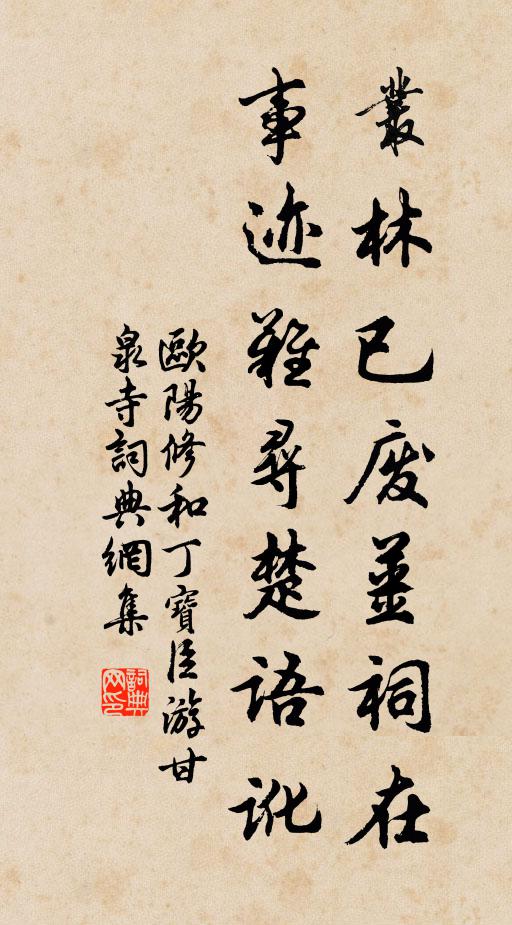 叢林已废薑祠在
事迹難尋楚語訛
歐陽修和丁寶臣游甘
泉寺詞典網集
詞典网印